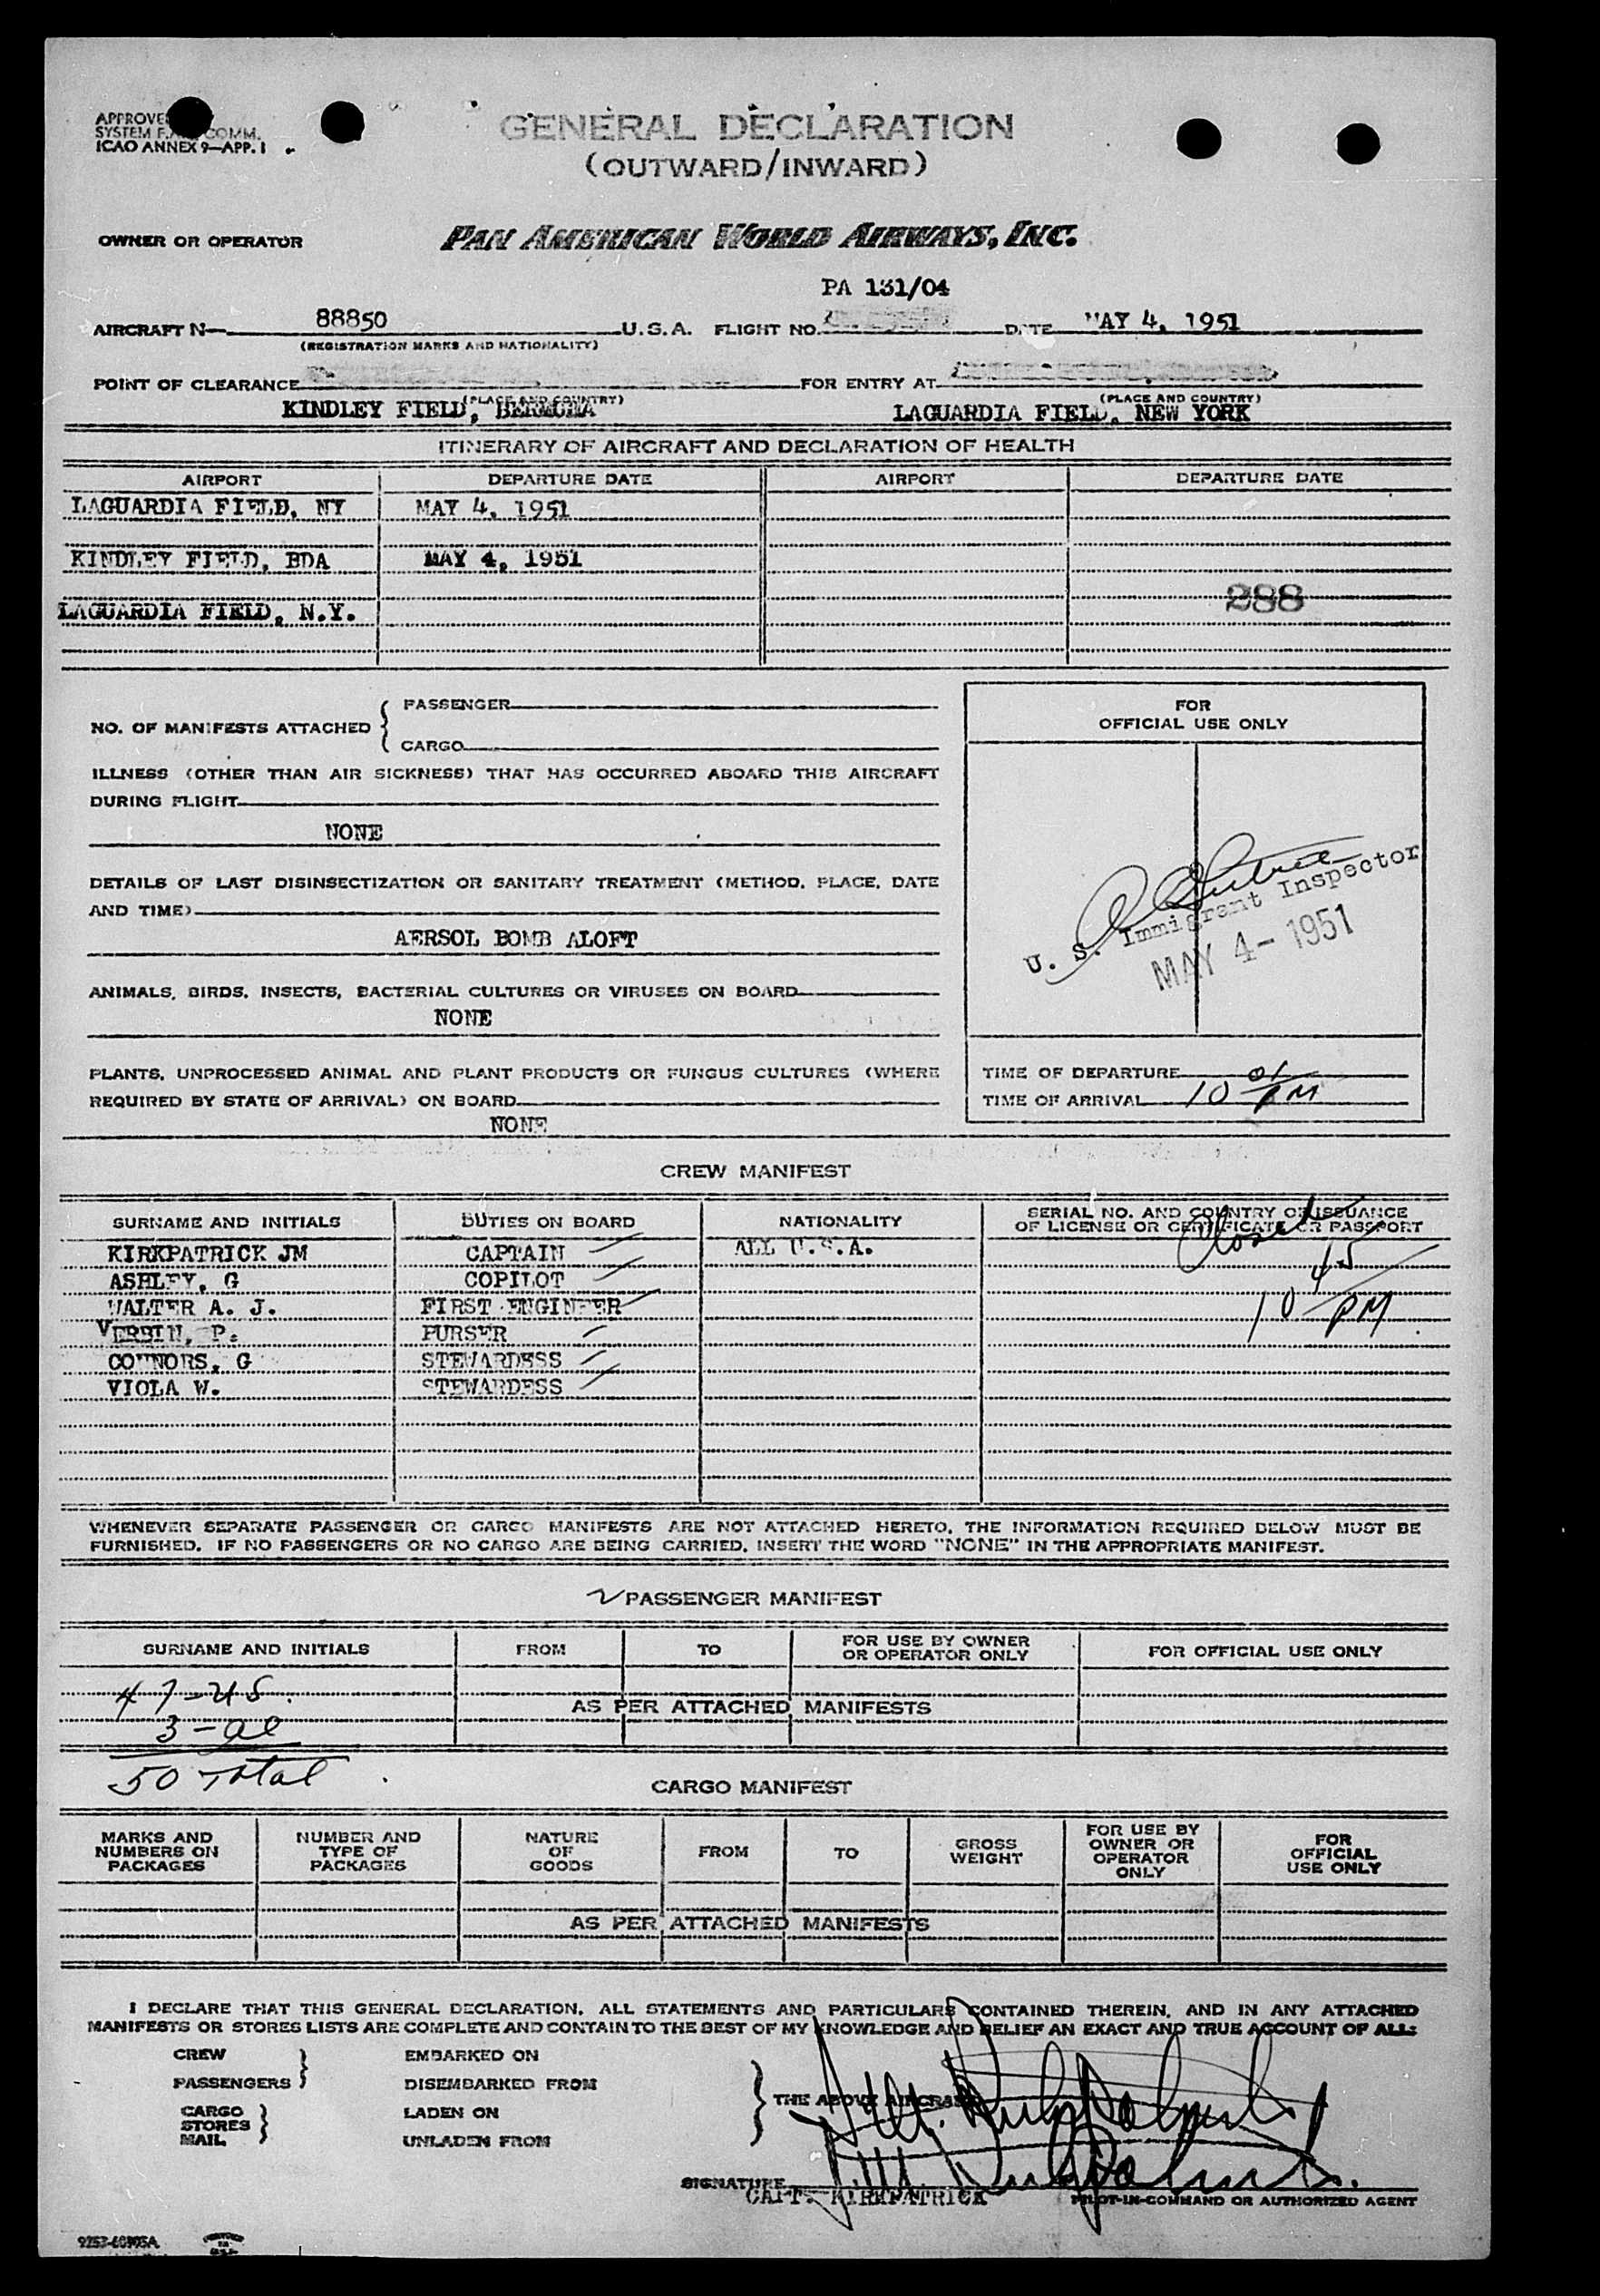 APPROVE
SYSTEM F. COMM.
ICAO ANNEX 9—APP. 1
GENERAL DECLARATION
(OUTWARD/INWARD)
OWNER OR OPERATOR PAN AMERICAN WORLD AIRWAYS, INC.
PA 131/04
AIRCRAFT N— 88850 U.S.A. FLIGHT NO. DATE MAY 4, 1951
(REGISTRATION MARKS AND NATIONALITY)
POINT OF CLEARANCE FOR ENTRY AT
(PLACE AND COUNTRY) (PLACE AND COUNTRY)
KINDLEY FIELD, BERMUDA LAGUARDIA FIELD, NEW YORK
ITINERARY OF AIRCRAFT AND DECLARATION OF HEALTH
AIRPORT DEPARTURE DATE AIRPORT DEPARTURE DATE
LAGUARDIA FIELD, NY MAY 4, 1951
KINDLEY FIELD, BDA MAY 4, 1951
288
LAGUARDIA FIELD, N.Y.
NO. OF MANIFESTS ATTACHED { PASSENGER
CARGO
ILLNESS (OTHER THAN AIR SICKNESS) THAT HAS OCCURRED ABOARD THIS AIRCRAFT
DURING FLIGHT
NONE
DETAILS OF LAST DISINSECTIZATION OR SANITARY TREATMENT (METHOD, PLACE, DATE
AND TIME)
AERSOL BOMB ALOFT
ANIMALS, BIRDS, INSECTS, BACTERIAL CULTURES OR VIRUSES ON BOARD
NONE
PLANTS, UNPROCESSED ANIMAL AND PLANT PRODUCTS OR FUNGUS CULTURES (WHERE
REQUIRED BY STATE OF ARRIVAL) ON BOARD
NONE
FOR
OFFICIAL USE ONLY
U. S. Immigrant Inspector
MAY 4- 1951
TIME OF DEPARTURE
TIME OF ARRIVAL 10 01 PM
CREW MANIFEST
SURNAME AND INITIALS DUTIES ON BOARD NATIONALITY SERIAL NO. AND COUNTRY OF ISSUANCE
OF LICENSE OR CERTIFICATE OR PASSPORT
Closed
10 45 PM
KIRKPATRICK JM CAPTAIN ALL U.S.A.
ASHLEY, G COPILOT
WALTER A. J. FIRST ENGINEER
VERBIN, P. PURSER
CONNORS, G STEWARDESS
VIOLA W. STEWARDESS
WHENEVER SEPARATE PASSENGER OR CARGO MANIFESTS ARE NOT ATTACHED HERETO, THE INFORMATION REQUIRED BELOW MUST BE
FURNISHED. IF NO PASSENGERS OR NO CARGO ARE BEING CARRIED, INSERT THE WORD "NONE" IN THE APPROPRIATE MANIFEST.
2 PASSENGER MANIFEST
SURNAME AND INITIALS FROM TO FOR USE BY OWNER
OR OPERATOR ONLY FOR OFFICIAL USE ONLY
47-US.
AS PER ATTACHED MANIFESTS
3-al
50 Total
CARGO MANIFEST
MARKS AND
NUMBERS ON
PACKAGES
NUMBER AND
TYPE OF
PACKAGES
NATURE
OF
GOODS
FROM
TO
GROSS
WEIGHT
FOR USE BY
OWNER OR
OPERATOR
ONLY
FOR
OFFICIAL
USE ONLY
AS PER ATTACHED MANIFESTS
I DECLARE THAT THIS GENERAL DECLARATION, ALL STATEMENTS AND PARTICULARS CONTAINED THEREIN, AND IN ANY ATTACHED
MANIFESTS OR STORES LISTS ARE COMPLETE AND CONTAIN TO THE BEST OF MY KNOWLEDGE AND BELIEF AN EXACT AND TRUE ACCOUNT OF ALL:
CREW EMBARKED ON
PASSENGERS } DISEMBARKED FROM
THE ABOVE AIRCRAFT
CARGO LADEN ON
STORES
MAIL } UNLADEN FROM
J.M. Kirkpatrick
J.M. Kirkpatrick
SIGNATURE
CAPT. KIRKPATRICK PILOT-IN-COMMAND OR AUTHORIZED AGENT